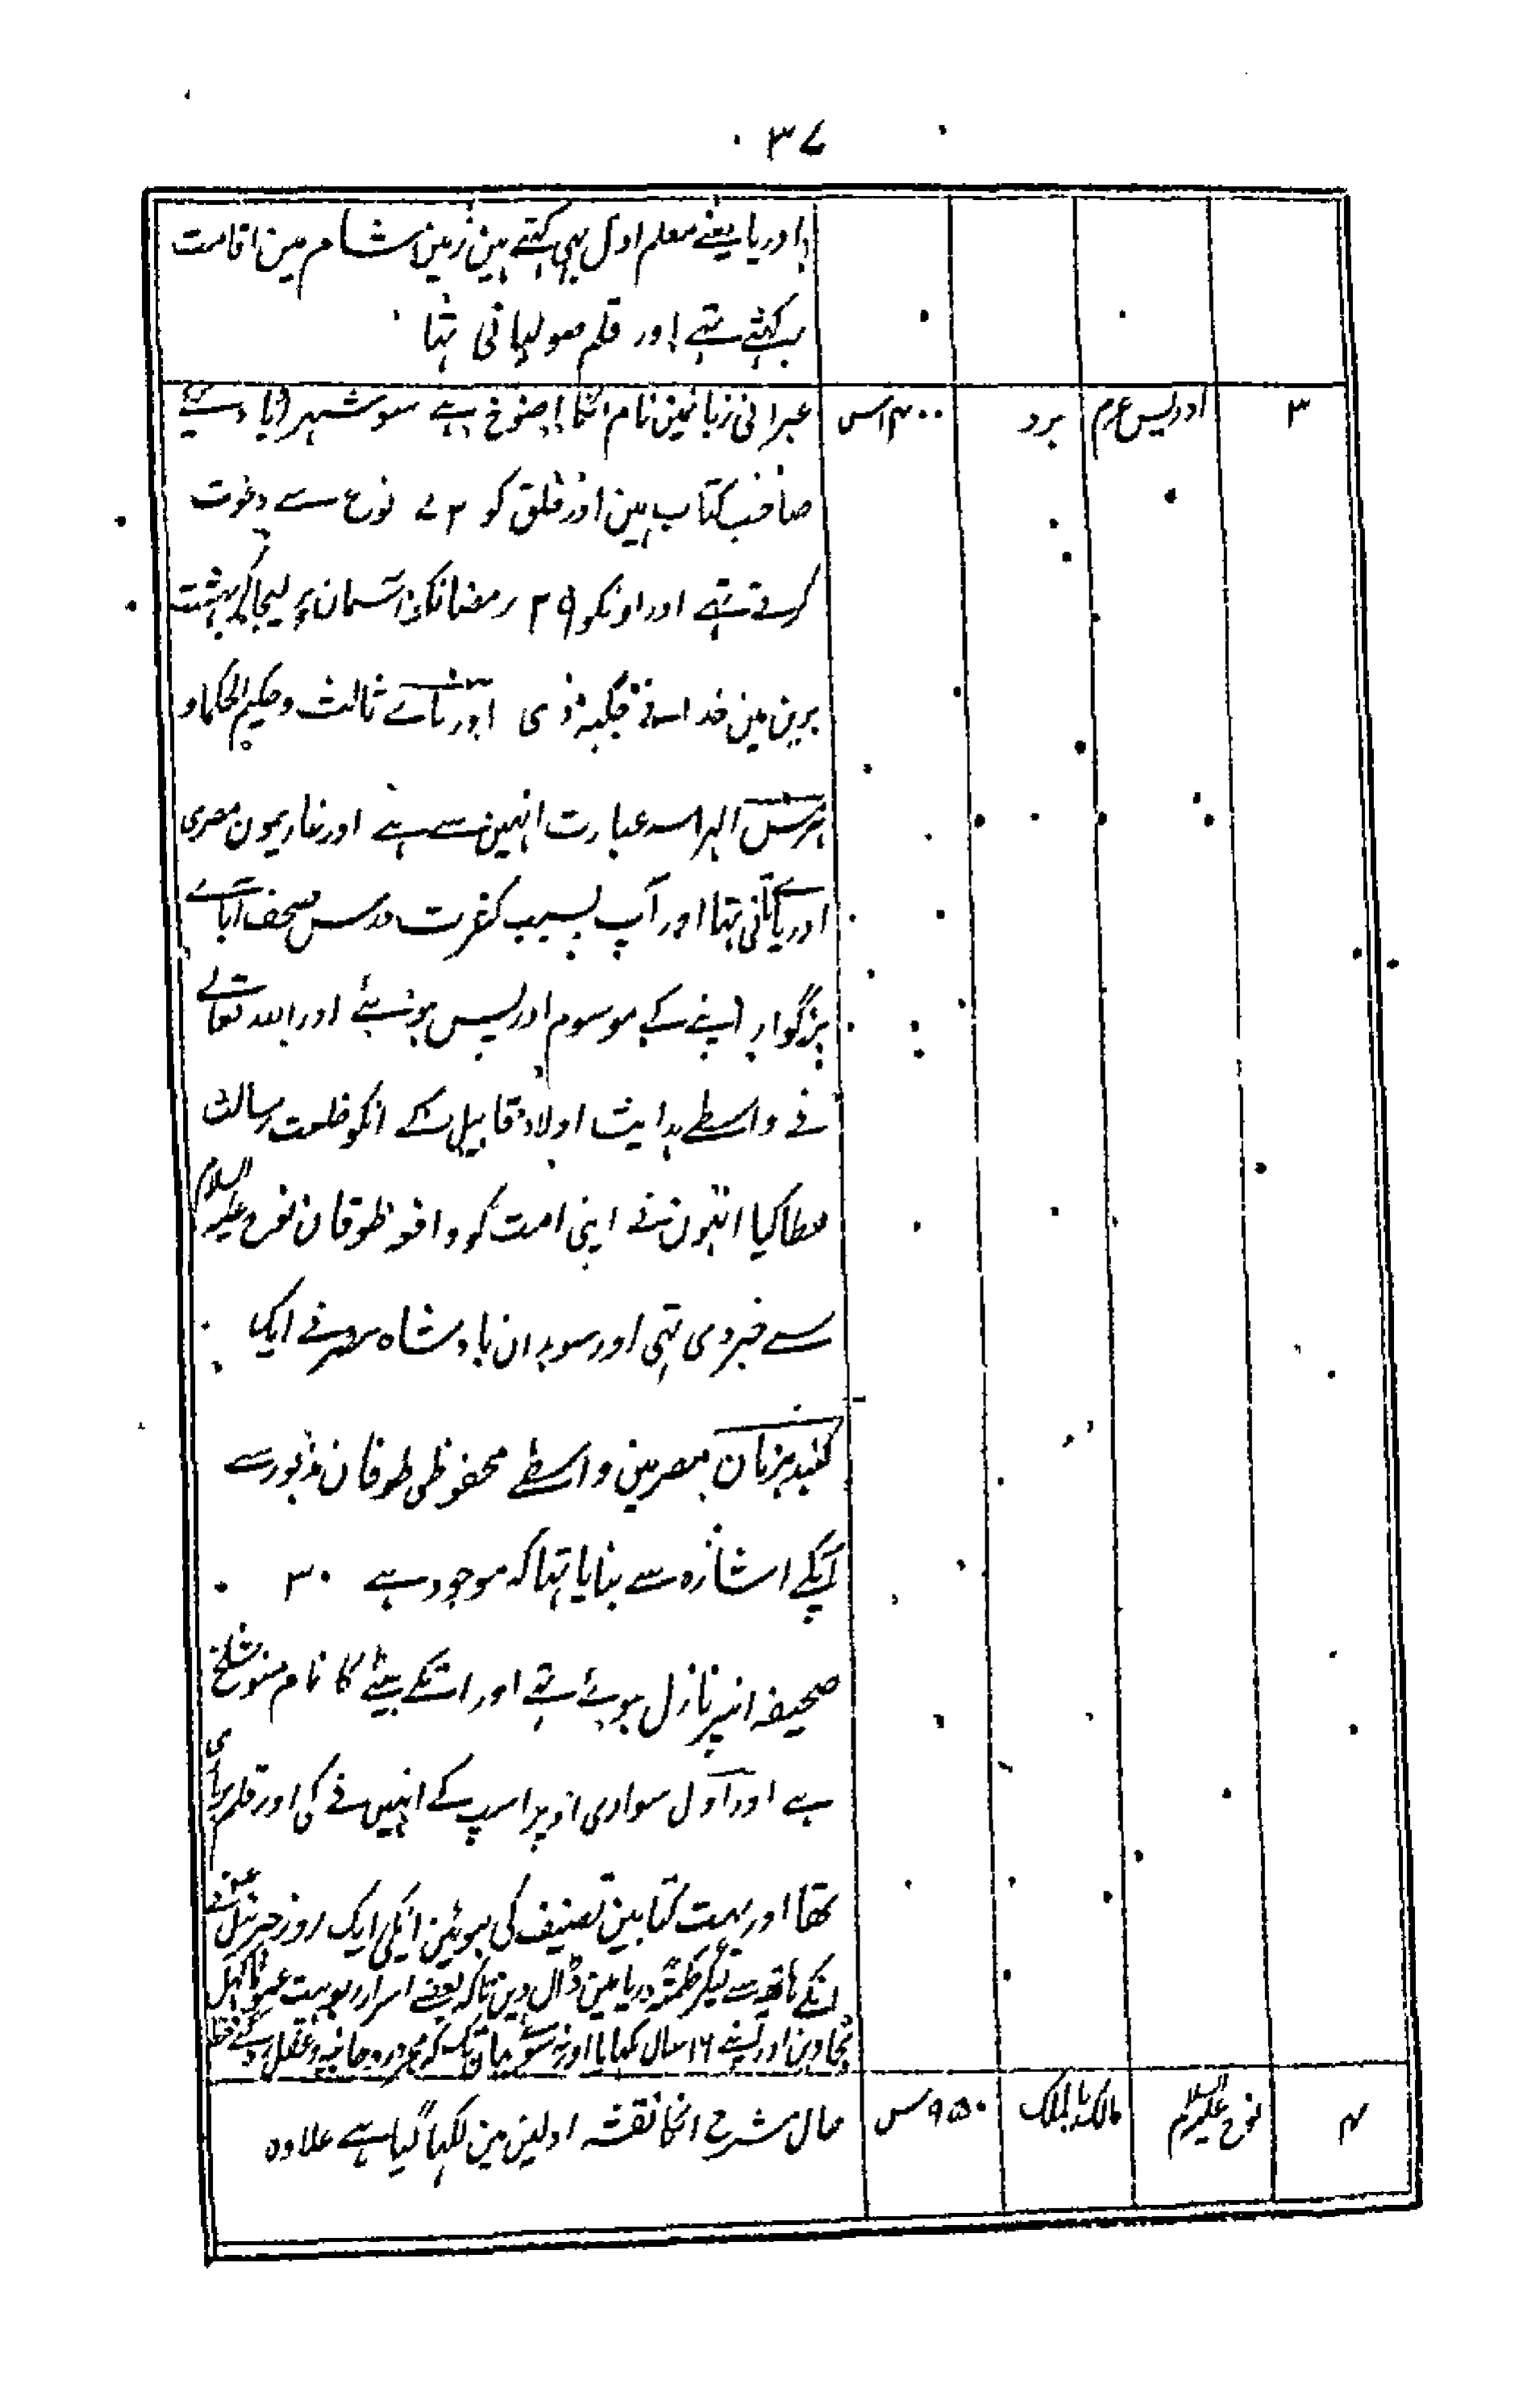 ۳۷
اوریا یعنے معلم اول بہی کہتے ہین زمین شام مین اقامت
رکہتے تہے اور قلم مولیانی تہا
۳ ادریس ع م برد ۴۰۰ اس عبرانی زبانمین نام انکا اخنوخ ہے سو شہر آباد کئے
صاحب کتاب ہین اور خلق کو ۷۲ نوع سے دعوت
کرتے تہے اور اونکو ۲۹ رمضانکو آسمان پر لیجاکر بہشت
برین مین خدا نے جگہہ دی اوریاے ثالث و حکیم الحکما و
ہرمس الہرامسہ عبارت انہین سے ہے اور غاریمون مصری
اوریاے ثانی تہا اور آپ بسبب کثرت درس صحف آباے
بزرگوار اپنے کے موسوم ادریس ہوئے اور اللہ تعالے
نے واسطے ہدایت اولاد قابیل کے انکو خلعت رسالت
عطا کیا انہون نے اپنی امت کو واقعہ طوفان نوح علیہ السلام
سے خبر دی تہی اور سوبدان بادشاہ مصر نے ایک
گنبد ہرمان مصر مین واسطے محفوظی طوفان مذبور سے
آپکے اشارہ سے بنایا تہا کہ موجود ہے ۳۰
صحیفہ انپر نازل ہوے تہے اور انکے بیٹے کا نام متوشلخ
ہے اور اول سواری اوپر اسپ کے انہین نے کی اور قلم
تھا اور بہت کتابین تصنیف کی ہوئین انکی ایک روز جبرئیل
انکے ہاتھ سے لیکر حکمۃً دریا مین ڈال دین تاکہ بعضے اسرار ربوبیت
نجاوین اور اپنے ۱۶ سال کہایا اور نہ سوئے یہان تک کہ مجرد روحانیہ و عقل
۴ نوح علیہ السلام مالک یا لمک ۹۵۰ س حال مشرح انکا نقشہ اولین مین لکہا گیا ہے علاوہ